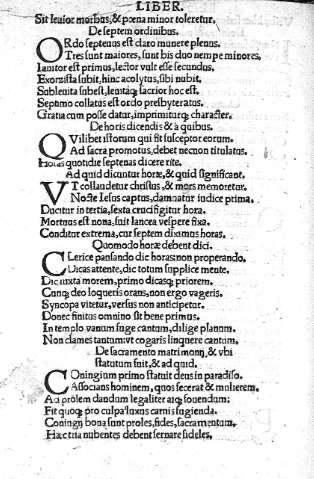 LIBER.
Sit leuior morbus, & pœna minor toleretur.
De septem ordinibus.
ORdo septenus est claro munere plenus.
Tres sunt maiores, sunt bis duo nempe minores.
Ianitor est primus, lector vult esse secundus.
Exorcista subit, hinc acolytus, sibi nubit.
Subleuita subest, leuitaq; sacrior hoc est.
Septimo collatus est ordo presbyteratus.
Gratia cum posse datur, imprimiturq; character.
De horis dicendis & à quibus.
QVilibet istorum qui fit susceptor eorum.
Ad sacra promotus, debet necnon titulatus.
Horas quotidie septenas dicere rite.
Ad quid dicuntur horæ, & quid significant.
VT collaudetur christus, & mors memoretur.
Nocte Iesus captus, damnatur iudice prima.
Ducitur in tertia, sexta crucifigitur hora.
Mortuus est nona, fuit lancea vespere fixa.
Conditur extrema, cur septem diximus horas.
Quomodo horæ debent dici.
CLerice pausando dic horas: non properando.
Dicas attente, dic totum supplice mente.
Dic iuxta morem, primo dicasq; priorem.
Cunq; deo loqueris orans, non ergo vageris.
Syncopa vitetur, versus non anticipetur.
Donec finitus omnino sit bene primus.
In templo vanum fuge cantum, dilige planum.
Non clames tantum: vt cogaris linquere cantum.
De sacramento matrimonij, & vbi
statutum fuit, & ad quid.
COningium primo statuit deus in paradiso.
Associans hominem, quos fecerat & mulierem.
Ad prolem dandum legaliter atq; fouendum:
Fit quoq; pro culpa luxus carnis fugienda.
Coningij bona sunt proles, fides, sacramentum.
Hæc tria nubentes debent seruare fideles.